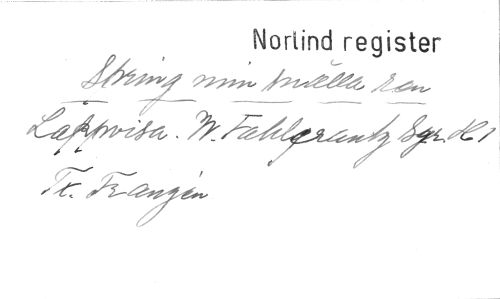 Norlind register
Spring min snälla ren
Lappvisa. W. Fahlgrantz Sgr. H 1
Tx. Franzén